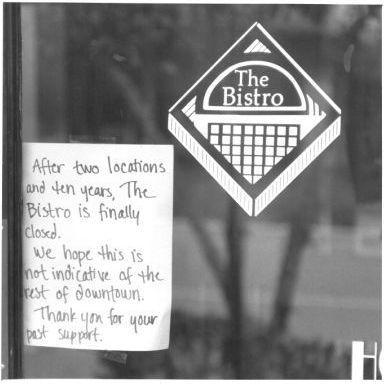 The
Bistro
After two locations
and ten years, The
Bistro is finally
closed.
We hope this is
not indicative of the
rest of downtown.
Thank you for your
past support.